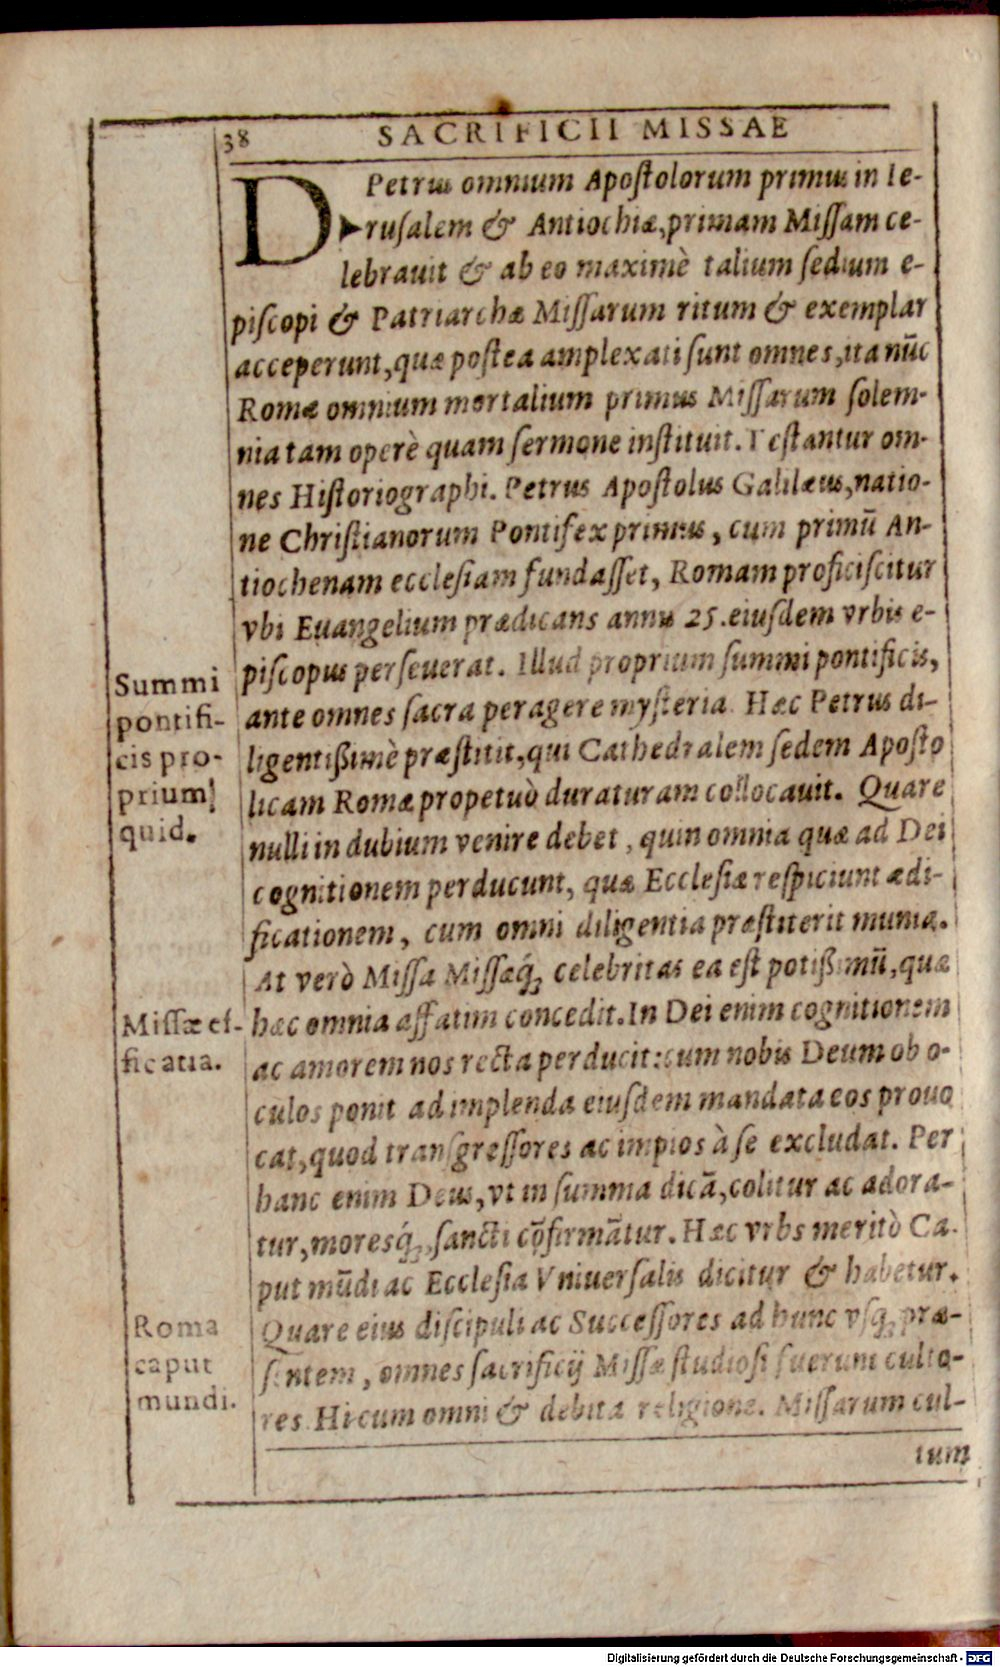 38 SACRIFICII MISSAE
D Petrus omnium Apostolorum primus in Ie-
rusalem & Antiochiæ, primam Missam ce-
lebravit & ab eo maximè talium sedium e-
piscopi & Patriarchæ Missarum ritum & exemplar
acceperunt, quæ postea amplexati sunt omnes, ita nūc
Romæ omnium mortalium primus Missarum solem-
nia tam operè quam sermone instituit. Testantur om-
nes Historiographi. Petrus Apostolus Galilæus, natio-
ne Christianorum Pontifex primus, cum primū An-
tiochenam ecclesiam fundasset, Romam proficiscitur
vbi Euangelium prædicans annu 25. eiusdem vrbis e-
piscopus perseuerat. Illud proprium summi pontificis,
ante omnes sacra peragere mysteria. Hæc Petrus di-
ligentißimè præstitit, qui Cathedralem sedem Aposto
licam Romæ propetuò duraturam collocauit. Quare
nulli in dubium venire debet, quin omnia quæ ad Dei
cognitionem perducunt, quæ Ecclesiæ respiciunt ædi-
ficationem, cum omni diligentia præstiterit munia.
At verò Missa Missæq́; celebritas ea est potißimū, quæ
hæc omnia affatim concedit. In Dei enim cognitionem
ac amorem nos recta perducit: cum nobis Deum ob o-
culos ponit ad implenda eiusdem mandata eos prouo
cat, quod transgressores ac impios à se excludat. Per
hanc enim Deus, vt in summa dicā, colitur ac adora-
tur, moresq́;, sancti cōfirmātur. Hæc vrbs meritò Ca-
put mūdi ac Ecclesia Vniuersalis dicitur & habetur.
Quare eius discipuli ac Successores ad hunc vsq; præ-
sentem, omnes sacrificij Missæ studiosi fuerunt culto-
res. Hi cum omni & debita religione. Missarum cul-
tum
Summi
pontifi-
cis pro-
prium
quid.
Missæ ef-
ficatia.
Roma
caput
mundi.
Digitalisierung gefördert durch die Deutsche Forschungsgemeinschaft - DFG